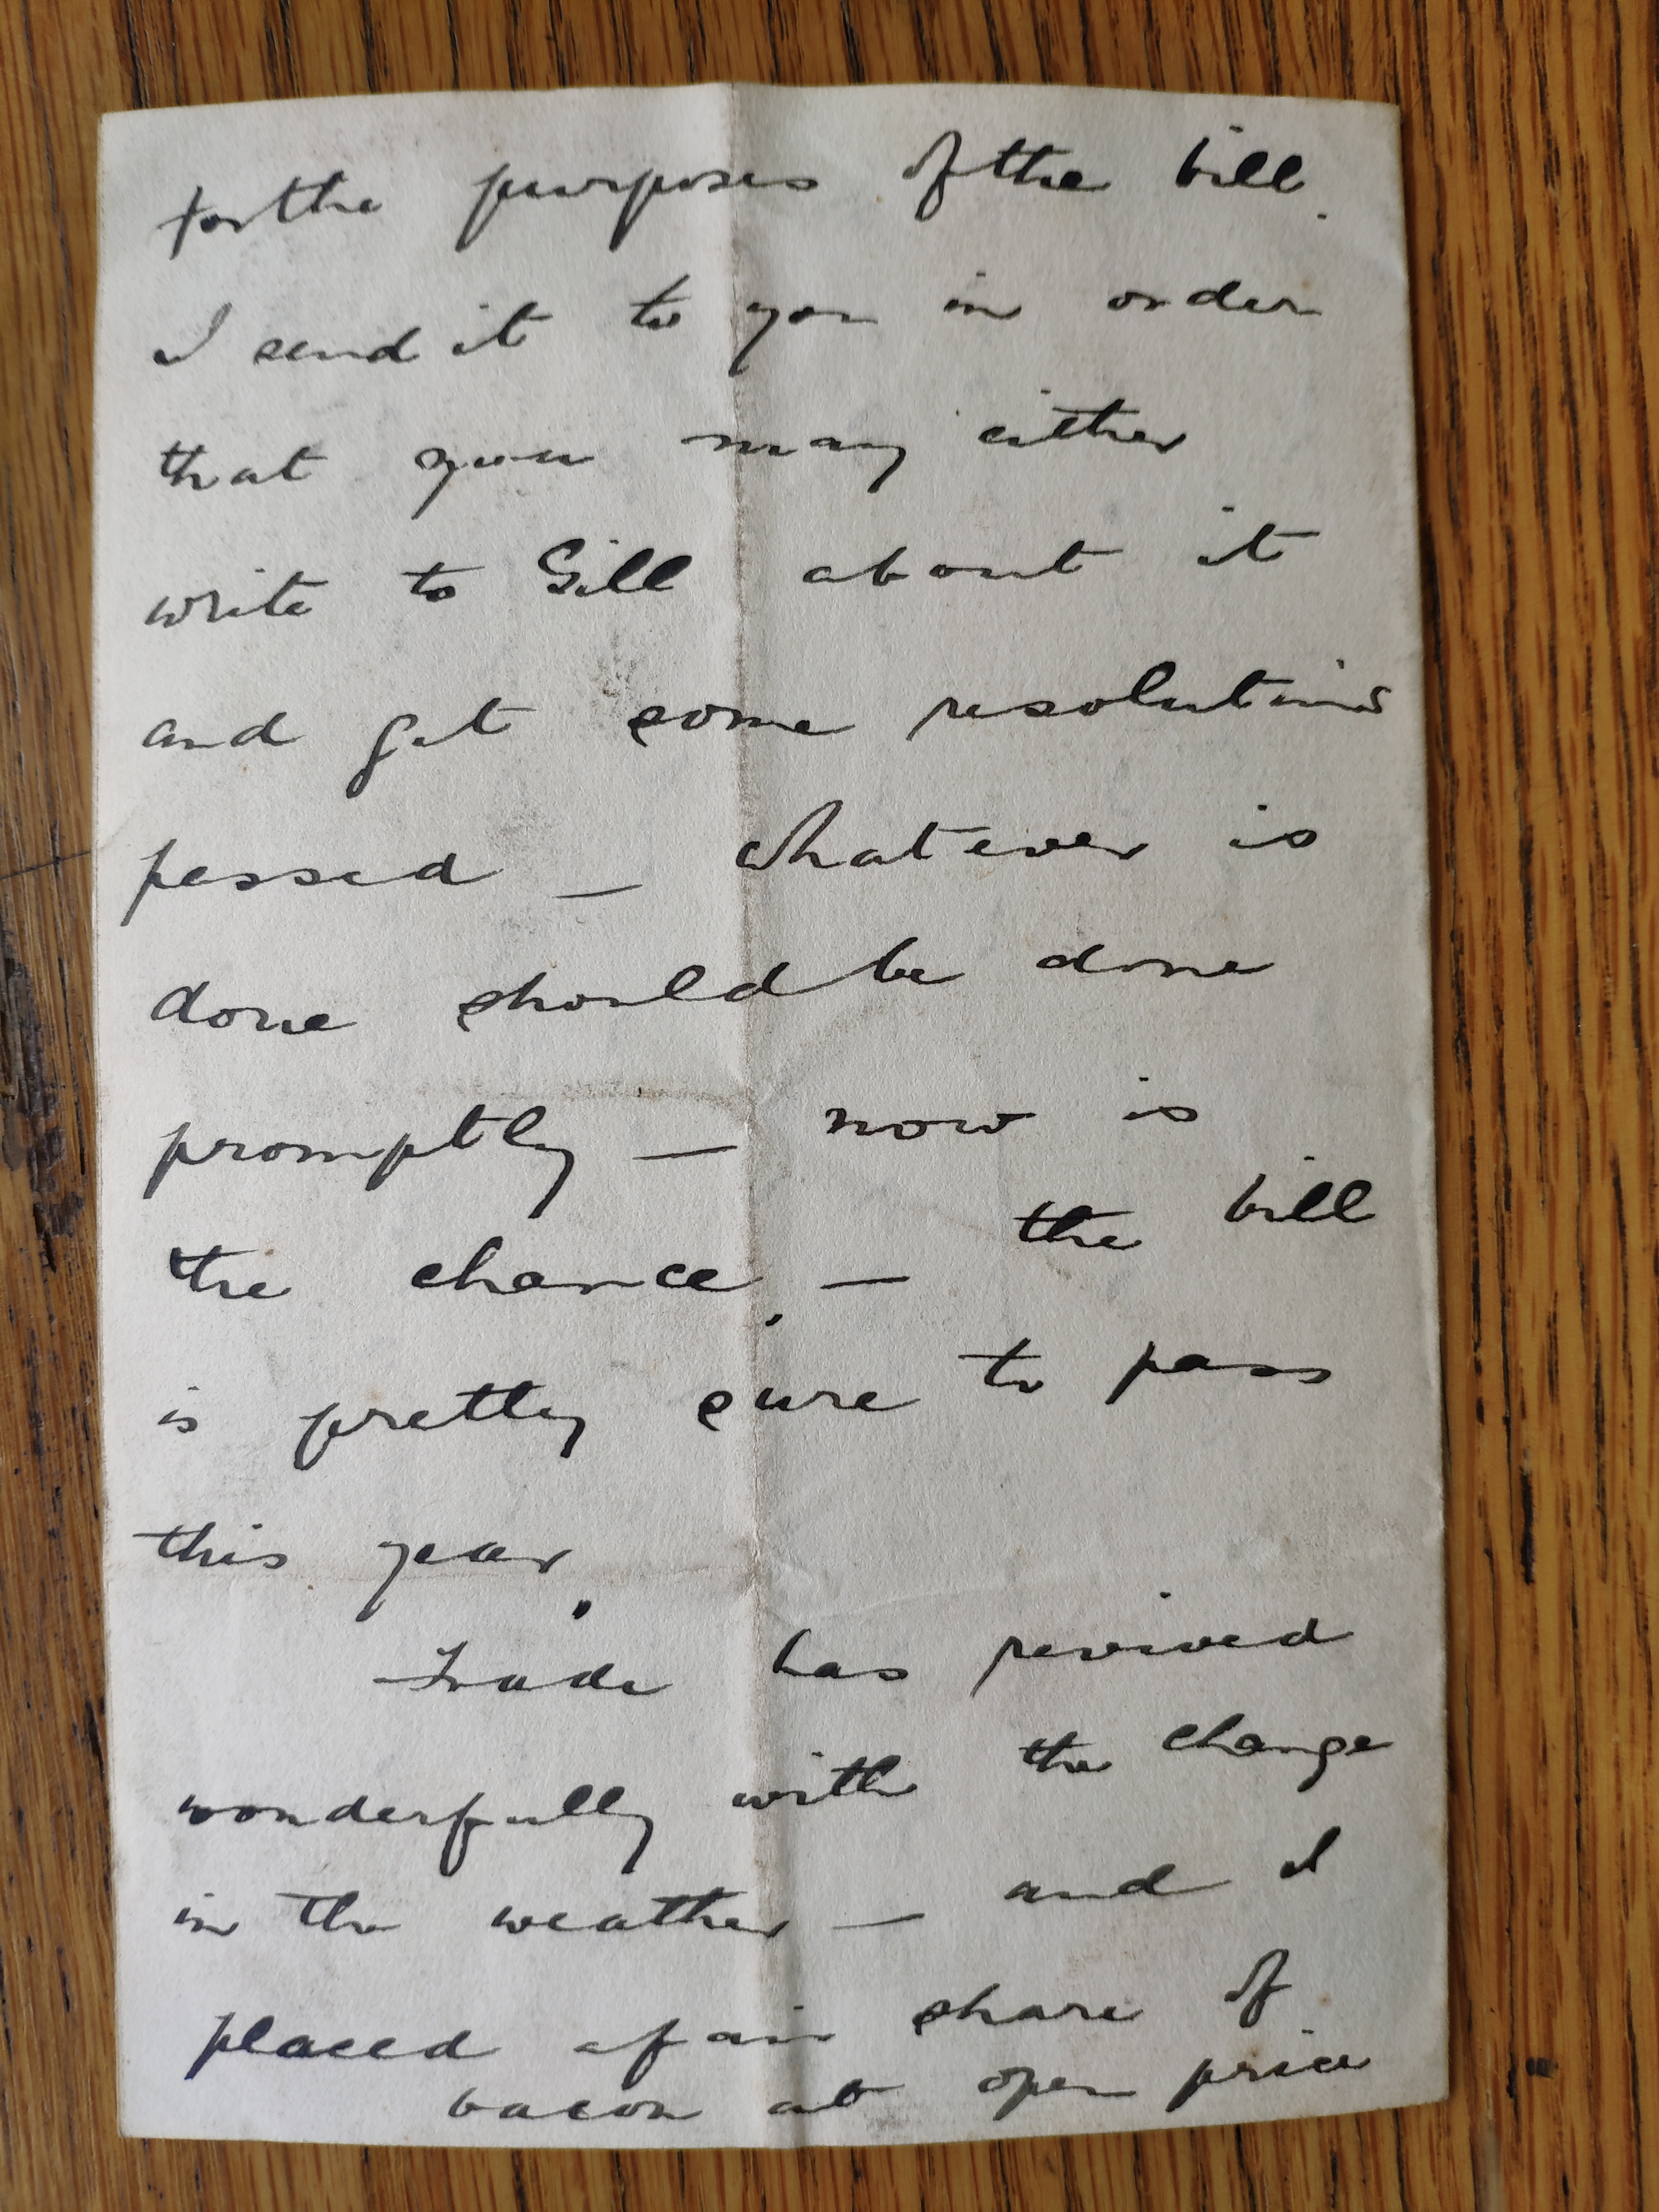 for the purposes of the bill.
I send it to you in order
that you may either
write to Gill about it
and get some resolutions
passed — whatever is
done should be done
promptly — now is
the chance. — the bill
is pretty sure to pass
this year.
Trade has revived
wonderfully with the change
in the weather — and I
placed a fair share of
bacon at open price